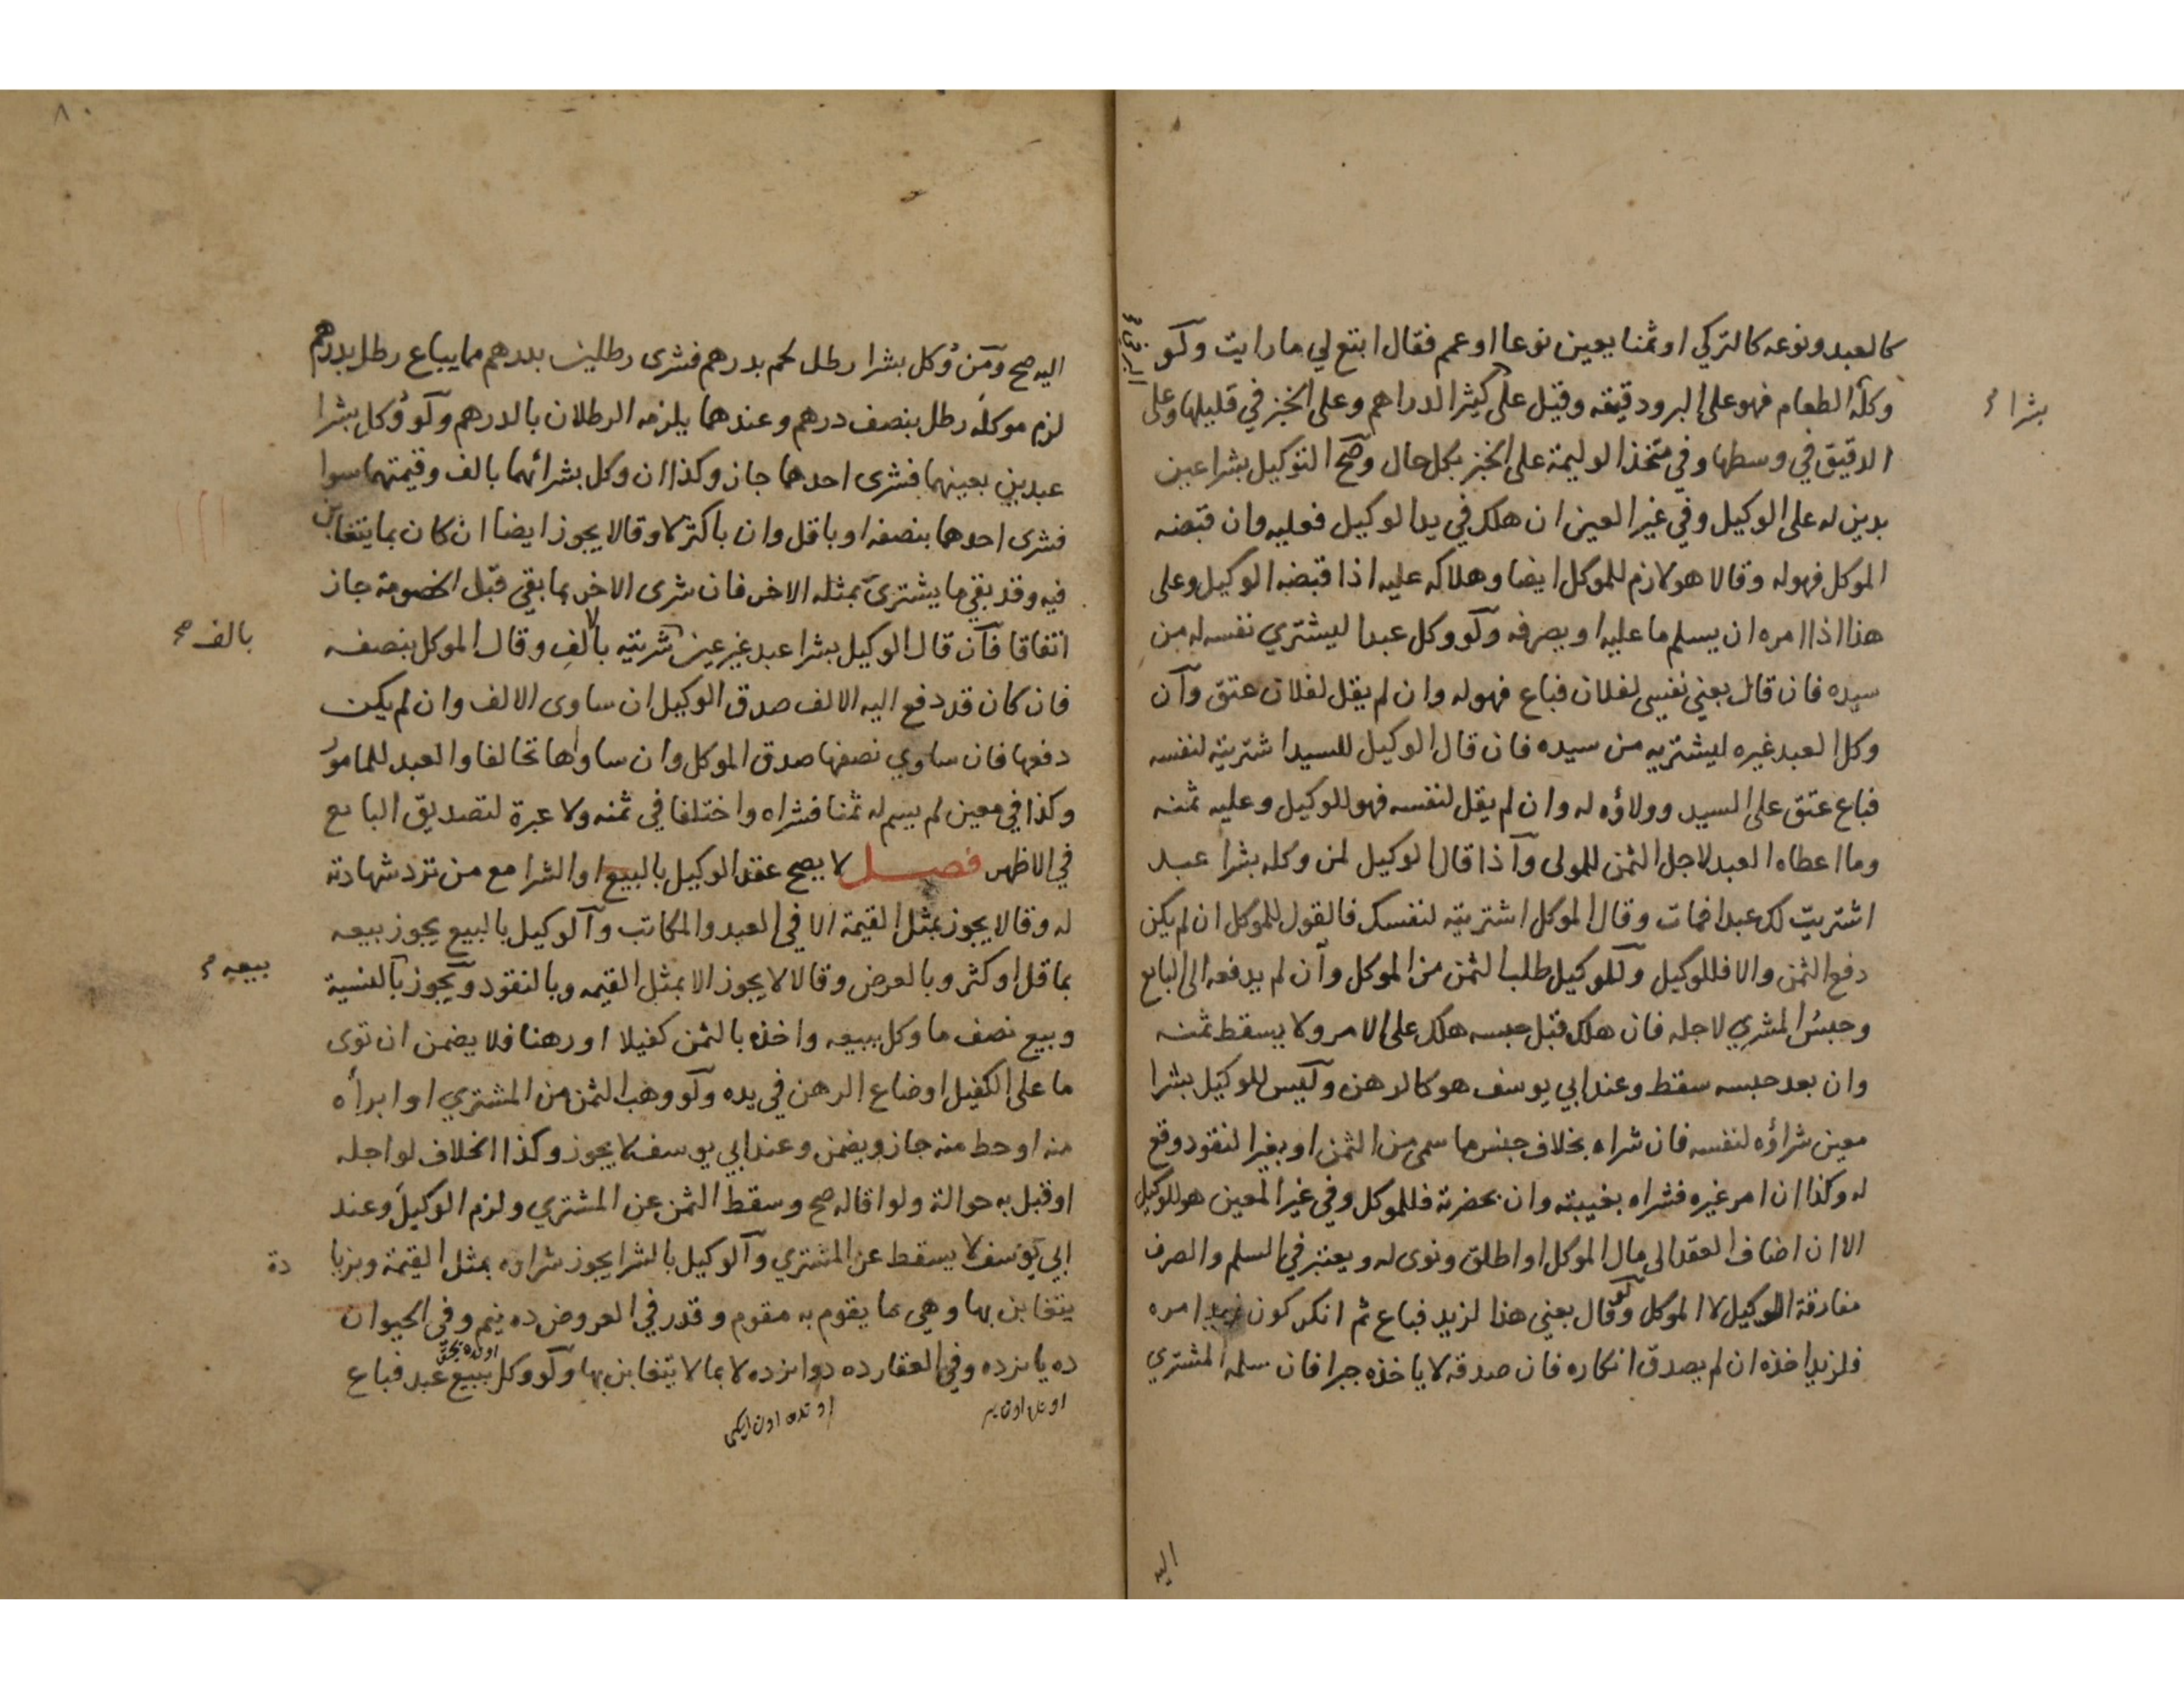 كالعبد ونوعه كالتركي او ثمنا يعين نوعا او عمم فقال ابتع لي ما رايت ولو
وكله الطعام فهو على البر ودقيقه وقيل على كثير الدراهم وعلى الخبز في قليلها وعلى
بشرا
الدقيق في وسطها وفي متخذ الوليمة على الخبز بكل حال وصح التوكيل بشرا عين
بدين له على الوكيل وفي غير العين ان هلك في يد الوكيل فعليه وان قبضه
الموكل فهو له وقالا هو لازم للموكل ايضا وهلاكه عليه اذا قبضه الوكيل وعلى
هذا اذا امره ان يسلم ما عليه او يصرفه ولو وكل عبدا ليشتري نفسه له من
سيده فان قال بعني نفسي لفلان فباع فهو له وان لم يقل لفلان عتق وان
وكل العبد غيره ليشتريه من سيده فان قال الوكيل للسيد اشتريته لنفسه
فباع عتق على السيد وولاؤه له وان لم يقل لنفسه فهو للوكيل وعليه ثمنه
وما اعطاه العبد لاجل الثمن للمولى واذا قال الوكيل لمن وكله بشرا عبد
اشتريت لك عبدا فمات وقال الموكل اشتريته لنفسك فالقول للموكل ان لم يكن
دفع الثمن والا فللوكيل وللوكيل طلب الثمن من الموكل وان لم يدفعه الى البايع
وحبس المشري لاجله فان هلك قبل حبسه هلك على الامر ولا يسقط ثمنه
وان بعد حبسه سقط وعند ابي يوسف هو كالرهن وليس للوكيل بشرا
معين شراؤه لنفسه فان شراه بخلاف جنس ما سمى من الثمن او بغير النقود وقع
له وكذا ان امر غيره فشراه بغيبته وان بحضرته فللموكل وفي غير المعين هو للوكيل
الا ان اضاف العقد الى مال الموكل او اطلق ونوى له ويعتبر في السلم والصرف
مفارقة الوكيل لا الموكل ولو قال بعني هذا لزيد فباع ثم انكر كون زيد امره
فلزيد اخذه ان لم يصدق انكاره فان صدقه لا ياخذه جبرا فان سلمه المشتري
اليه
اليه صح ومن وكل بشرا رطل لحم بدرهم فشرى رطلين بدرهم مما يباع رطل بدرهم
لزم موكله رطل بنصف درهم وعندهما يلزمه الرطلان بالدرهم ولو وكل بشرا
عبدين بعينهما فشرى احدهما جاز وكذا ان وكل بشرائهما بالف وقيمتهما سوا
فشرى احدهما بنصفه او باقل وان باكثر لا وقالا يجوز ايضا ان كان بما يتغابن
فيه وقد بقي ما يشترى بمثله الاخر فان شرى الاخر بما بقي قبل الخصومة جاز
اتفاقا فان قال الوكيل بشرا عبد غير عين شريته بالف وقال الموكل بنصفه
بالف صح
فان كان قد دفع اليه الالف صدق الوكيل ان ساوى الالف وان لم يكن
دفعها فان ساوي نصفها صدق الموكل وان ساواها تحالفا والعبد للمامور
وكذا في معين لم يسم له ثمنا فشراه واختلفا في ثمنه ولا عبرة لتصديق البايع
في الاظهر فصل لا يصح عقد الوكيل بالبيع او الشرا مع من ترد شهادته
له وقالا يجوز بمثل القيمة الا في العبد والمكاتب والوكيل بالبيع يجوز بيعه
بما قل او كثر وبالعرض وقالا لا يجوز الا بمثل القيمه وبالنقود ويجوز بالنسية
بيعه
وبيع نصف ما وكل ببيعه واخذه بالثمن كفيلا او رهنا فلا يضمن ان توى
ما على الكفيل او ضاع الرهن في يده ولو وهب الثمن من المشتري او ابرأه
منه او حط منه جاز ويضمن وعند ابي يوسف لا يجوز وكذا الخلاف لو اجله
او قبل به حوالة ولو اقاله صح وسقط الثمن عن المشتري ولزم الوكيل وعند
ابي يوسف لا يسقط عن المشتري والوكيل بالشرا يجوز شراوه بمثل القيمة وبزيا
دة
يتغابن بها وهي ما يقوم به مقوم وقدر في العروض ده نيم وفى الحيوان
ده يازده وفي العقار ده دوازده لا بما لا يتغابن بها ولو وكل ببيع عبد فباع